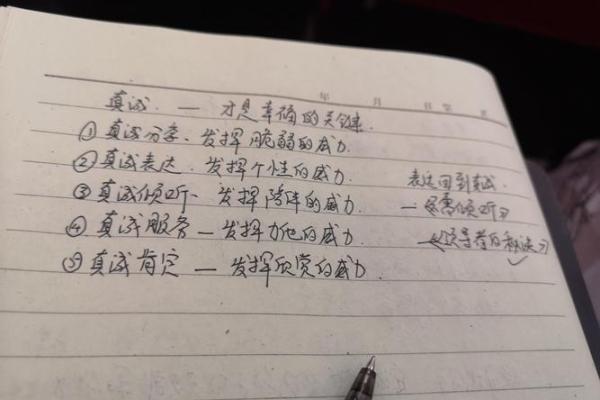 年 月 日
真诚. — 才是幸福的关键.
① 真诚分享、发挥脆弱的威力.
② 真诚表达. 发挥个性的威力.
③ 真诚倾听. 发挥陪伴的威力.
④ 真诚服务 — 发挥利他的威力.
⑤ 真诚肯定 — 发挥欣赏的威力.
表达回到真诚.
—《倾听》
—《领导者的》